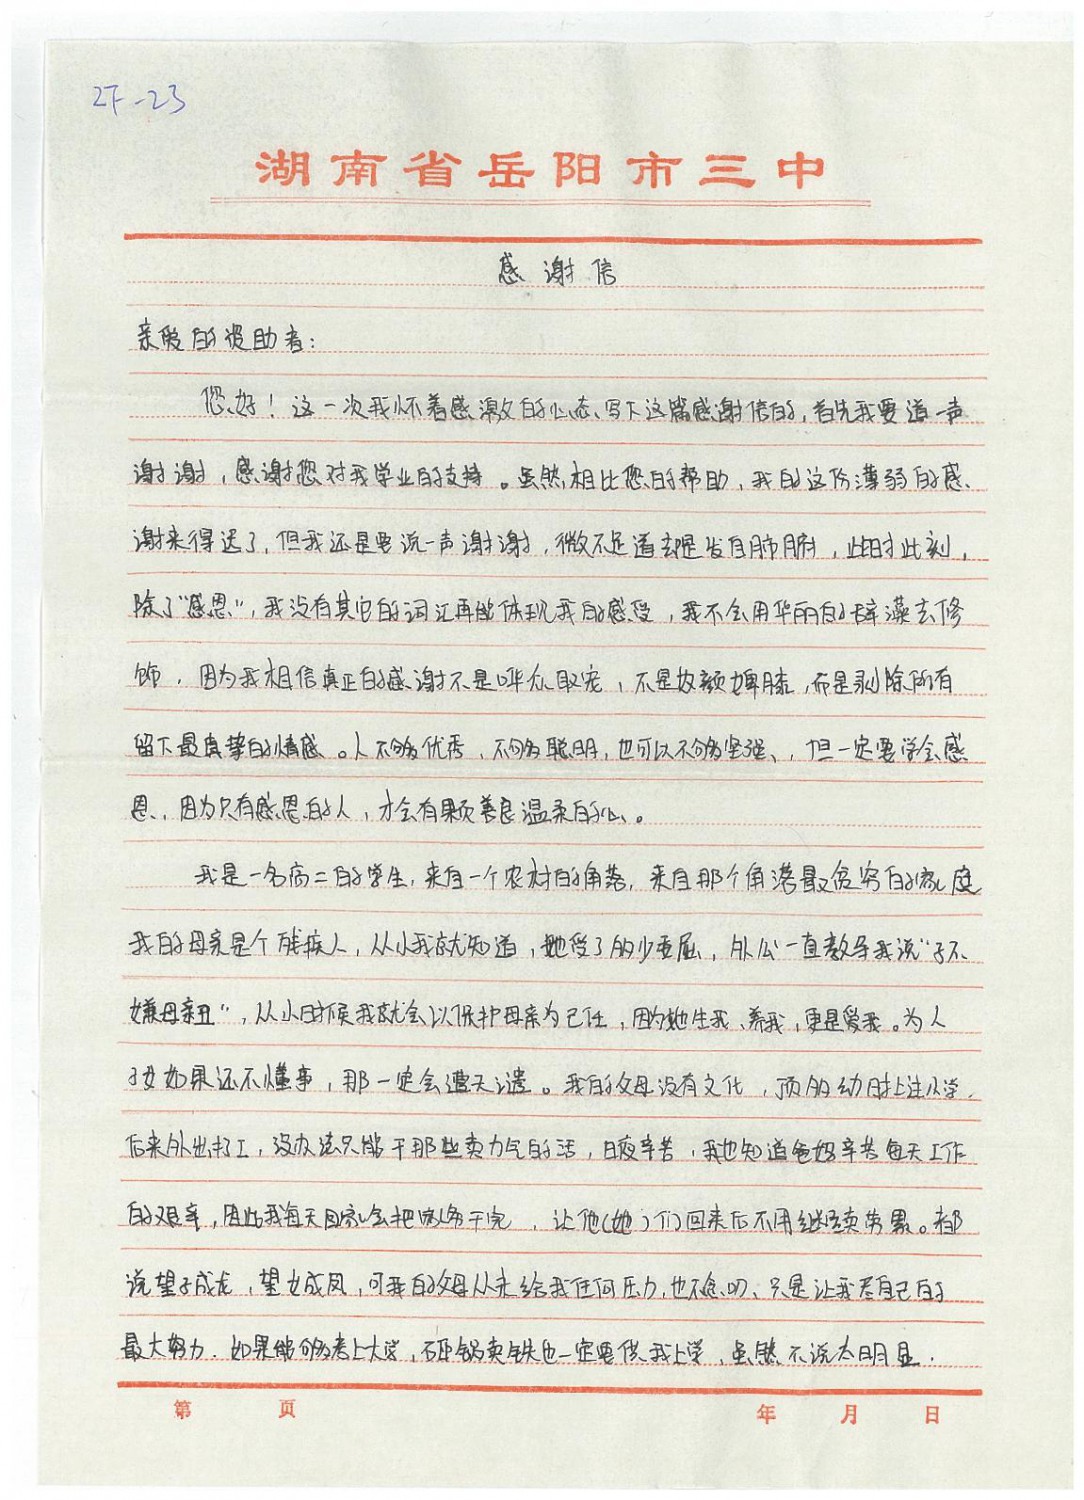 27-23
湖南省岳阳市三中
感谢信
亲爱的资助者：
您好！这一次我怀着感激的心态写下这篇感谢信的，首先我要道一声
谢谢，感谢您对我学业的支持。虽然相比您的帮助，我的这份薄弱的感
谢来得迟了，但我还是要说一声谢谢，微不足道却是发自肺腑，此时此刻，
除了“感恩”，我没有其它的词汇再能体现我的感受，我不会用华丽的辞藻去修
饰，因为我相信真正的感谢不是哗众取宠，不是奴颜婢膝，而是剥除所有
留下最真挚的情感。人不够优秀，不够聪明，也可以不够坚强，但一定要学会感
恩，因为只有感恩的人，才会有颗善良温柔的心。
我是一名高二的学生，来自一个农村的角落，来自那个角落最贫穷的家庭
我的母亲是个残疾人，从小我就知道，她受了多少委屈，外公一直教导我说“子不
嫌母亲丑”，从小时候我就会以保护母亲为己任，因为她生我、养我，更是爱我。为人
子女如果还不懂事，那一定会遭天谴。我的父母没有文化，顶多幼时上过小学，
后来外出打工，没办法只能干那些卖力气的活，日夜辛苦，我也知道爸妈辛苦每天工作
的艰辛，因此我每天回家会把家务干完，让他（她）们回来后不用继续劳累。都
说望子成龙，望女成凤，可我的父母从未给我任何压力，也不念叨，只是让我尽自己的
最大努力．如果能够考上大学，砸锅卖铁也一定要供我上学，虽然不说太明显．
第 页 年 月 日